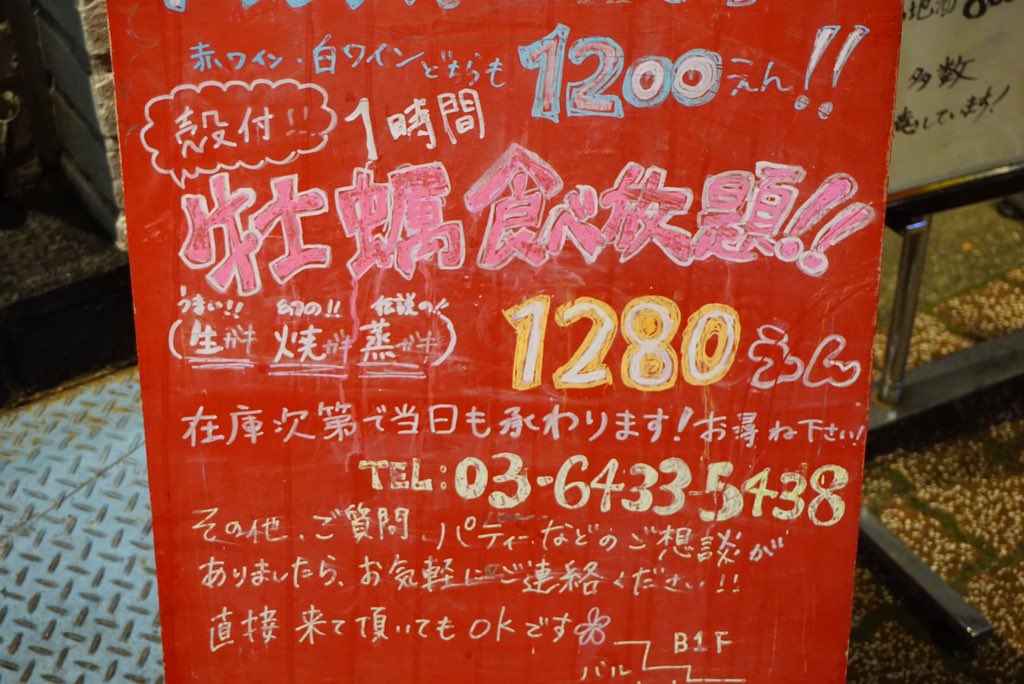 赤ワイン・白ワインどちらも 1200えん!!
殻付!! 1時間
牡蠣食べ放題!!
うまい!! 幻の!! 伝説の!!
(生ガキ 焼ガキ 蒸ガキ) 1280えん
在庫次第で当日も承わります!お尋ね下さい!
TEL:03-6433-5438
その他、ご質問、パティーなどのご想談が
ありましたら、お気軽にご連絡ください!!
直接来て頂いてもOKです
B1F
バル
多数
しています!